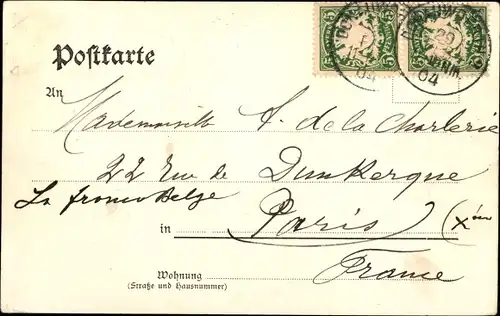 Postkarte
An
Mademoiselle A. de la Charlerie
22 Rue de Dunkerque
La franco Belge
in Paris (Xème)
France
Wohnung
(Straße und Hausnummer)
5 5 5 5
04 04